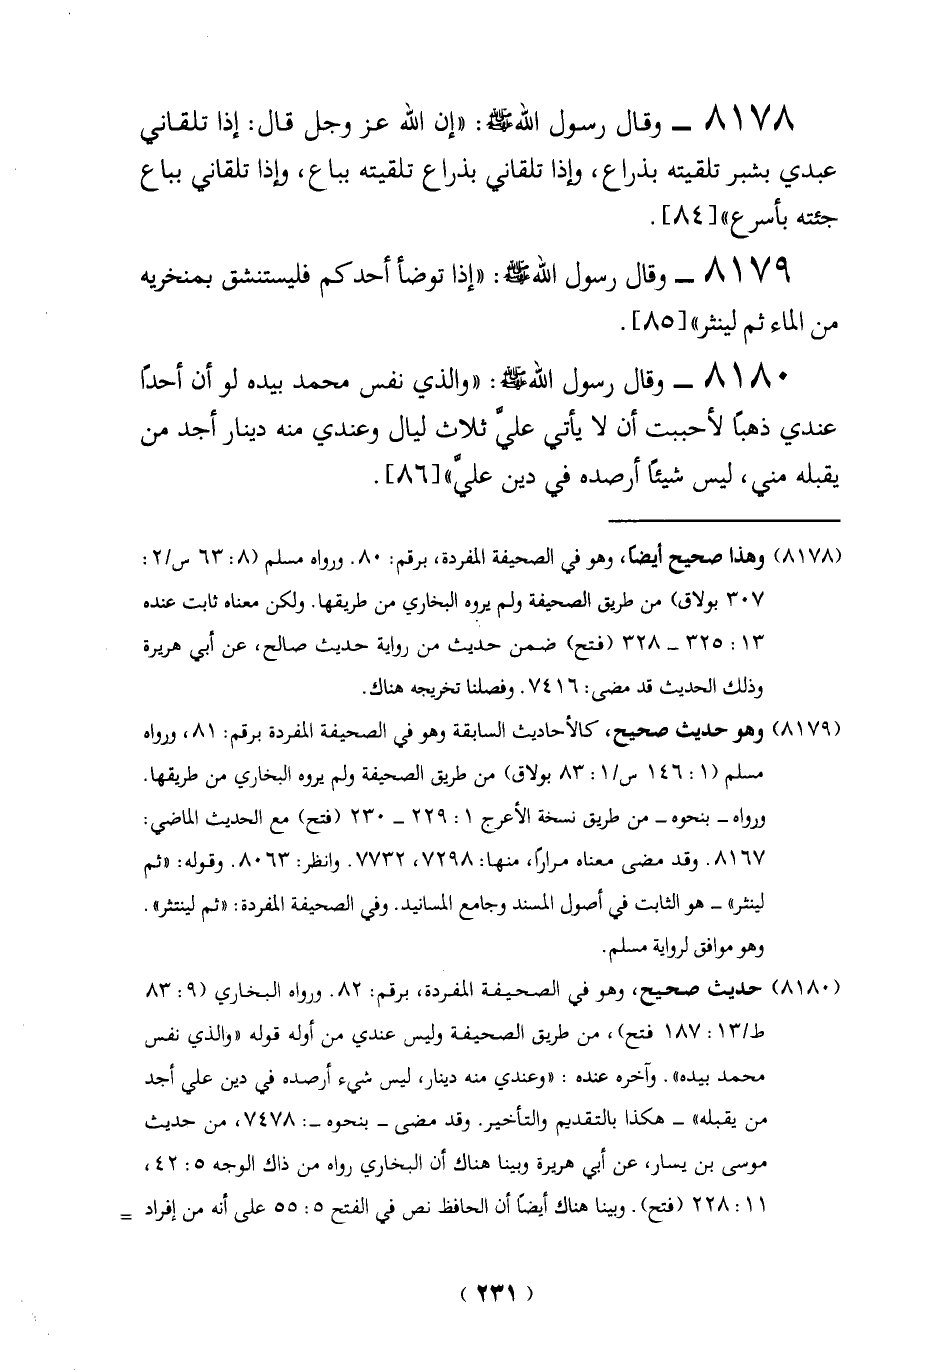 ٨١٧٨ ــ وقال رسول الله ﷺ: «إن الله عز وجل قال: إذا تلقاني
عبدي بشبر تلقيته بذراع، وإذا تلقاني بذراع تلقيته بباع، وإذا تلقاني بباع
جئته بأسرع»[٨٤].
٨١٧٩ ــ وقال رسول الله ﷺ: «إذا توضأ أحدكم فليستنشق بمنخريه
من الماء ثم لينثر»[٨٥].
٨١٨٠ ــ وقال رسول الله ﷺ: «والذي نفس محمد بيده لو أن أحدًا
عندي ذهبًا لأحببت أن لا يأتي عليَّ ثلاث ليال وعندي منه دينار أجد من
يقبله مني، ليس شيئًا أرصده في دين عليَّ»[٨٦].
(٨١٧٨) وهذا صحيح أيضًا، وهو في الصحيفة المفردة، برقم: ٨٠. ورواه مسلم (٨: ٦٣ س/٢:
٣٠٧ بولاق) من طريق الصحيفة ولم يروه البخاري من طريقها. ولكن معناه ثابت عنده
١٣: ٣٢٥ ــ ٣٢٨ (فتح) ضمن حديث من رواية حديث صالح، عن أبي هريرة
وذلك الحديث قد مضى: ٧٤١٦. وفصلنا تخريجه هناك.
(٨١٧٩) وهو حديث صحيح، كالأحاديث السابقة وهو في الصحيفة المفردة برقم: ٨١، ورواه
مسلم (١: ١٤٦ س/١: ٨٣ بولاق) من طريق الصحيفة ولم يروه البخاري من طريقها.
ورواه ــ بنحوه ــ من طريق نسخة الأعرج ١: ٢٢٩ ــ ٢٣٠ (فتح) مع الحديث الماضي:
٨١٦٧. وقد مضى معناه مرارًا، منها: ٧٢٩٨، ٧٧٣٢. وانظر: ٨٠٦٣. وقوله: «ثم
لينثر» ــ هو الثابت في أصول المسند وجامع المسانيد. وفي الصحيفة المفردة: «ثم لينتثر».
وهو موافق لرواية مسلم.
(٨١٨٠) حديث صحيح، وهو في الصحيفة المفردة، برقم: ٨٢. ورواه البخاري (٩: ٨٣
ط/١٣: ١٨٧ فتح)، من طريق الصحيفة وليس عندي من أوله قوله «والذي نفس
محمد بيده». وآخره عنده : «وعندي منه دينار، ليس شيء أرصده في دين علي أجد
من يقبله» ــ هكذا بالتقديم والتأخير. وقد مضى ــ بنحوه ــ: ٧٤٧٨، من حديث
موسى بن يسار، عن أبي هريرة وبينا هناك أن البخاري رواه من ذاك الوجه ٥: ٤٢،
١١: ٢٢٨ (فتح). وبينا هناك أيضًا أن الحافظ نص في الفتح ٥: ٥٥ على أنه من إفراد =
( ٢٣١ )